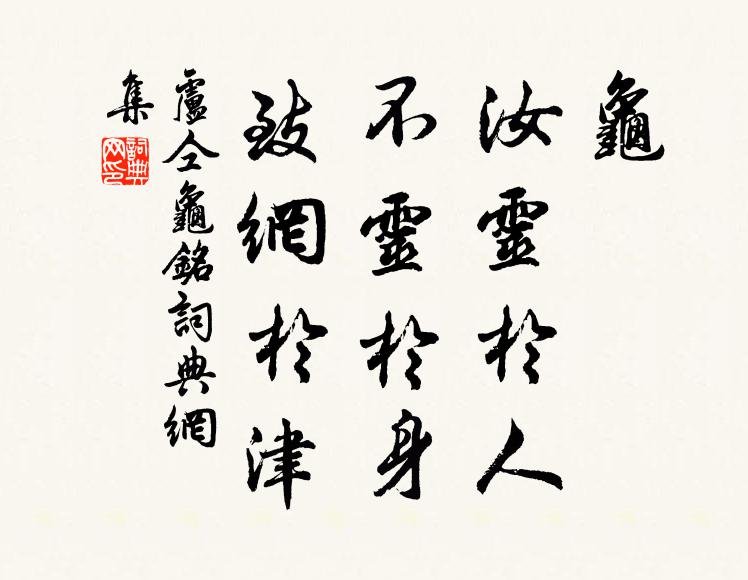 龜
汝靈於人
不靈於身
致網於津
盧仝龜銘詞典網
集
詞典
网印